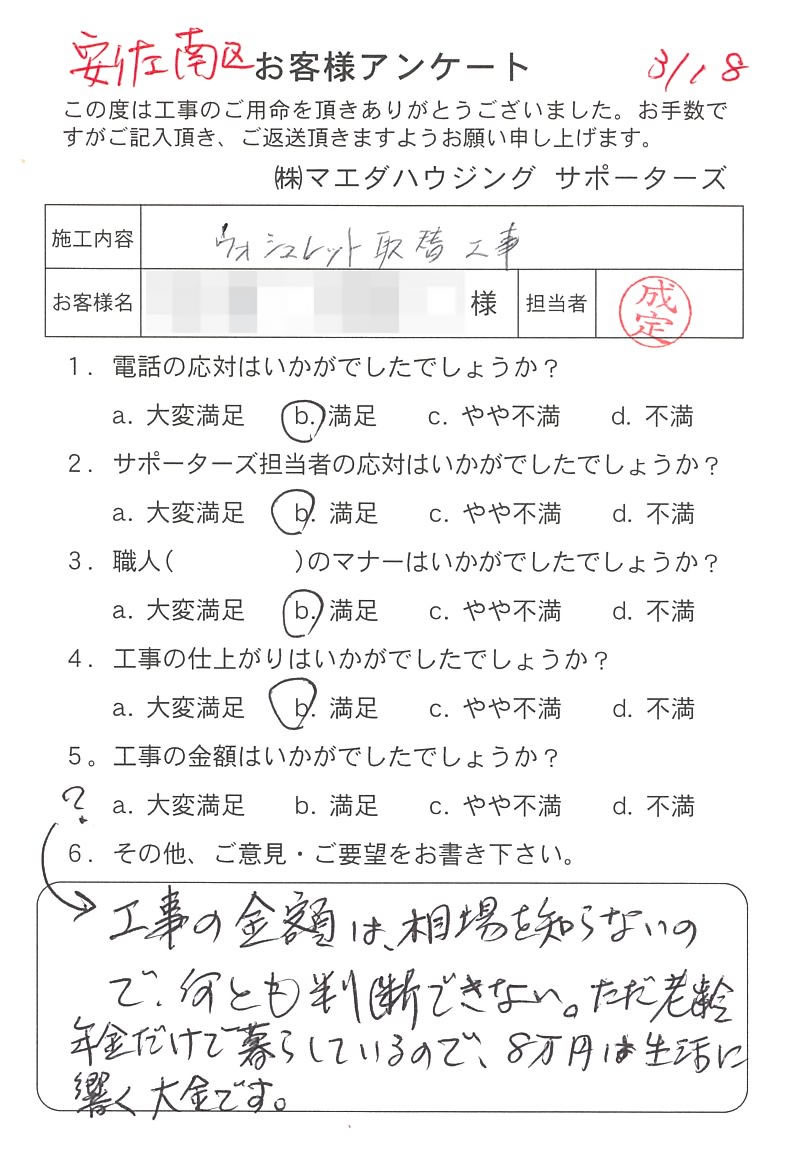 安佐南区 お客様アンケート 3/18
この度は工事のご用命を頂きありがとうございました。お手数で
すがご記入頂き、ご返送頂きますようお願い申し上げます。
㈱マエダハウジング サポーターズ
施工内容 ウォシュレット取替工事
お客様名 様 担当者 成定
1. 電話の応対はいかがでしたでしょうか?
a. 大変満足 b. 満足 c. やや不満 d. 不満
2. サポーターズ担当者の応対はいかがでしたでしょうか?
a. 大変満足 b. 満足 c. やや不満 d. 不満
3. 職人( )のマナーはいかがでしたでしょうか?
a. 大変満足 b. 満足 c. やや不満 d. 不満
4. 工事の仕上がりはいかがでしたでしょうか?
a. 大変満足 b. 満足 c. やや不満 d. 不満
5。工事の金額はいかがでしたでしょうか?
? a. 大変満足 b. 満足 c. やや不満 d. 不満
6. その他、ご意見・ご要望をお書き下さい。
工事の金額は、相場を知らないの
で、何とも判断できない。ただ老齢
年金だけで暮らしているので、8万円は生活に
響く大金です。